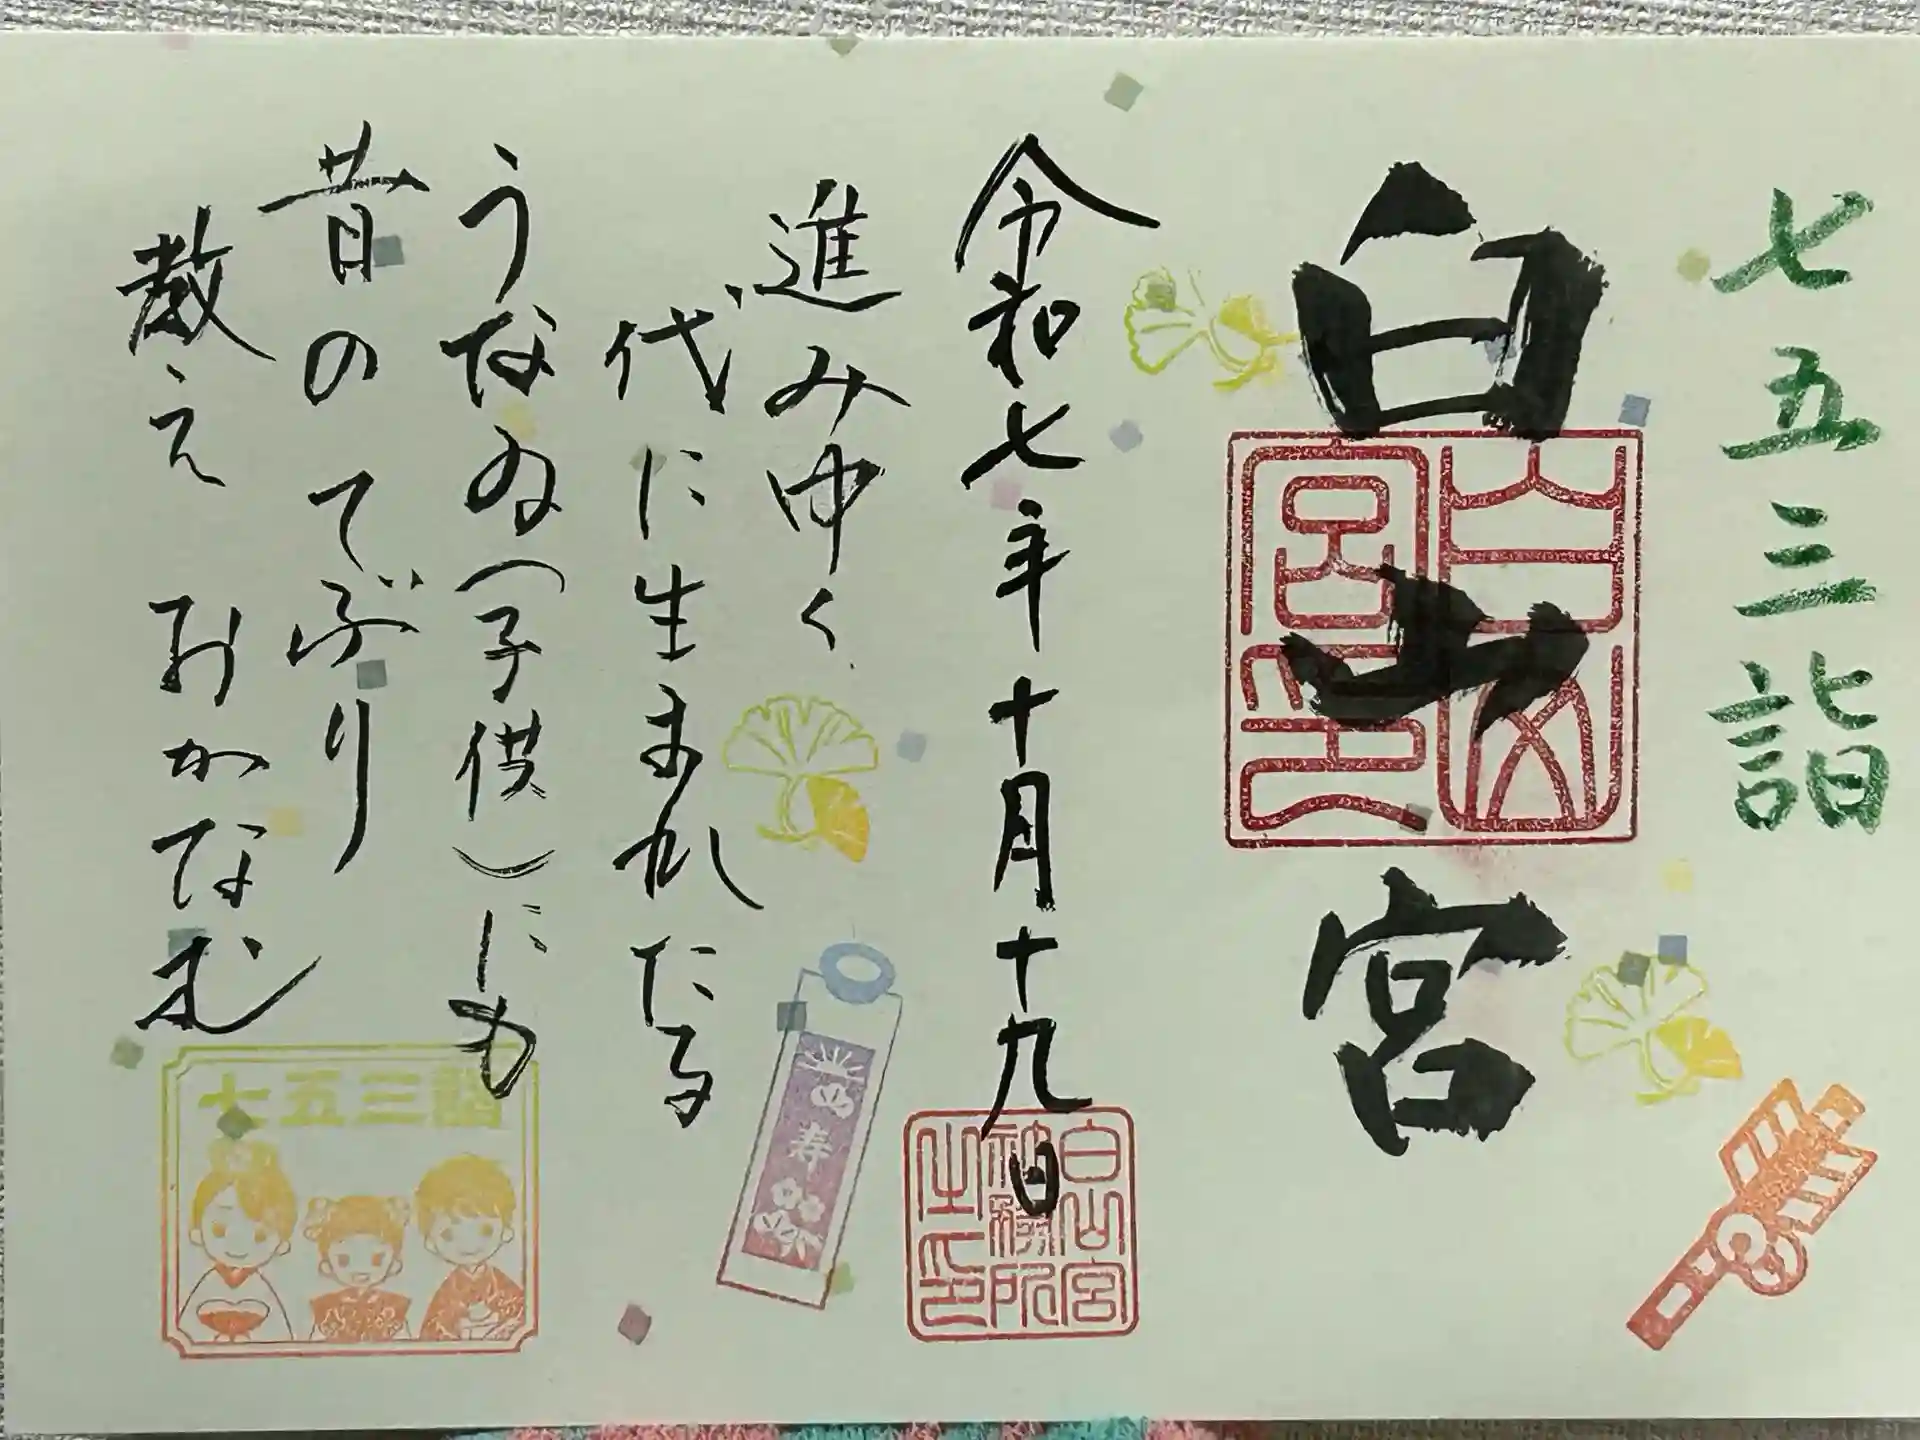 七五三詣
白山宮
白山宮印
令和七年十月十九日
白山宮
社務所
之印
進みゆく
代に生まれたる
うなゐ（子供）にも
昔のてぶり
教えおかなむ
寿
七五三詣